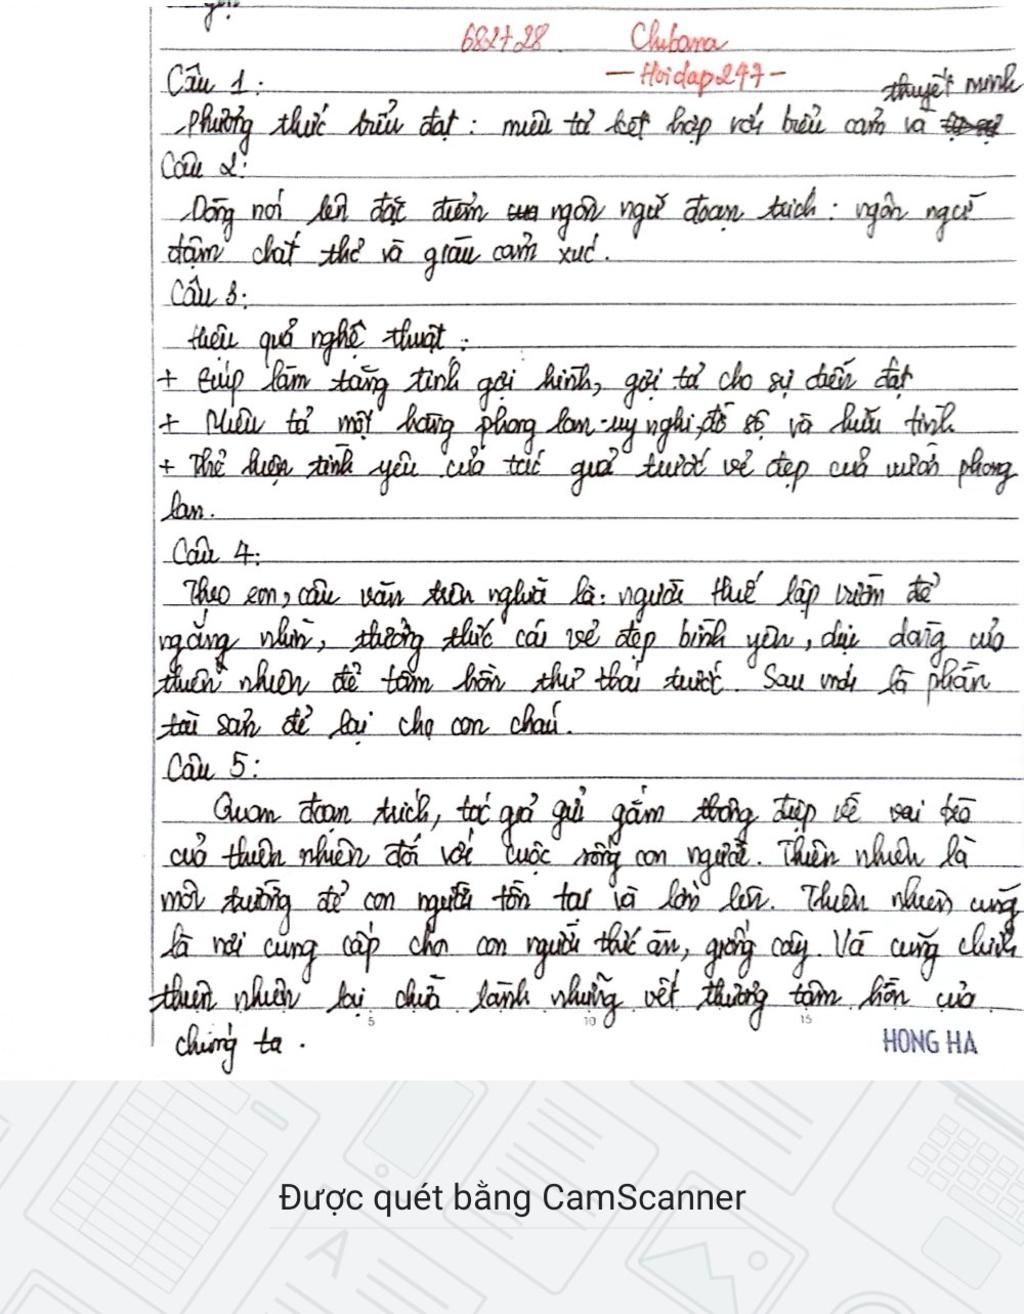 682728 Chibana
- Hoidap247 -
Câu 1:
thuyết minh
Phương thức biểu đạt: miêu tả kết hợp với biểu cảm và
Câu 2:
Dòng nói lên đặc điểm ngôn ngữ đoạn trích: ngôn ngữ
đậm chất thơ và giàu cảm xúc.
Câu 3:
Hiệu quả nghệ thuật:
+ Giúp làm tăng tính gợi hình, gợi tả cho sự diễn đạt
+ Miêu tả một hàng phong lan uy nghi, đồ sộ và hữu tình
+ Thể hiện tình yêu của tác giả trước vẻ đẹp của vườn phong
lan.
Câu 4:
Theo em, câu văn trên nghĩa là: người Huế lập vườn để
ngắng nhìn, thưởng thức cái vẻ đẹp bình yên, dịu dàng của
thiên nhiên để tâm hồn thư thái trước. Sau mới là phần
tài sản để lại cho con cháu.
Câu 5:
Quan đoạn trích, tác giả gửi gắm thông điệp về vai trò
của thiên nhiên đối với cuộc sống con người. Thiên nhiên là
môi trường để con người tồn tại và lớn lên. Thiên nhiên cũng
là nơi cung cấp cho con người thức ăn, giống cây. Và cũng chính
thiên nhiên lại chữa lành những vết thương tâm hồn của
chúng ta.
5 10 15
HONG HA
Được quét bằng CamScanner